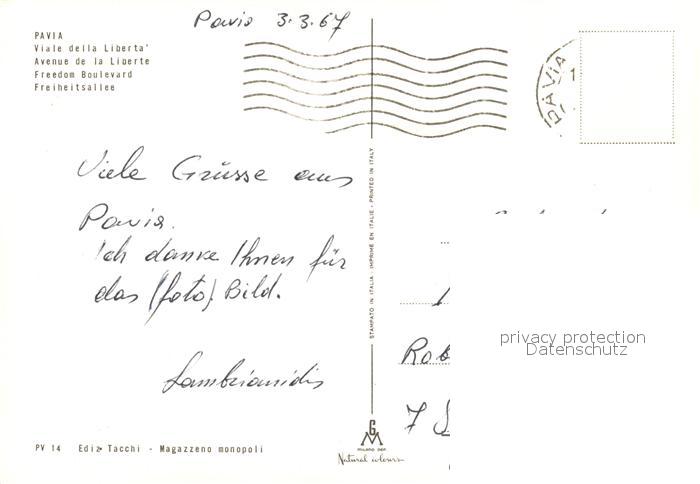 Pavia 3.3.67
PAVIA
Viale della Liberta'
Avenue de la Liberte
Freedom Boulevard
Freiheitsallee
PAVIA
1
Viele Grüsse aus
Pavia.
Ich danke Ihnen für
das (foto) Bild.
Lambrianidis
STAMPATO IN ITALIA - IMPRIMÉ EN ITALIE - PRINTED IN ITALY
Rob
7
privacy protection
Datenschutz
PV 14 Ediz Tacchi - Magazzeno monopoli
GM
MILANO DEP.
Natural colours